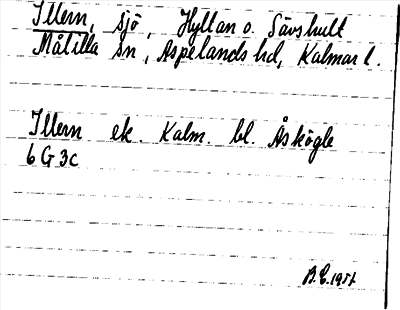 Illern, sjö, Hyllan o. Sävshult
Målilla sn, Aspelands hd, Kalmar l.
Illern ek. Kalm. bl. Åskögle
6 G 3c